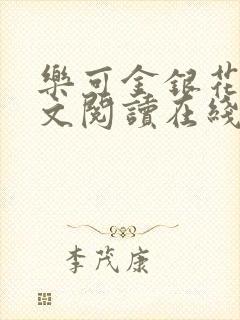 樂可金銀花
文閱讀在綫
李茂康